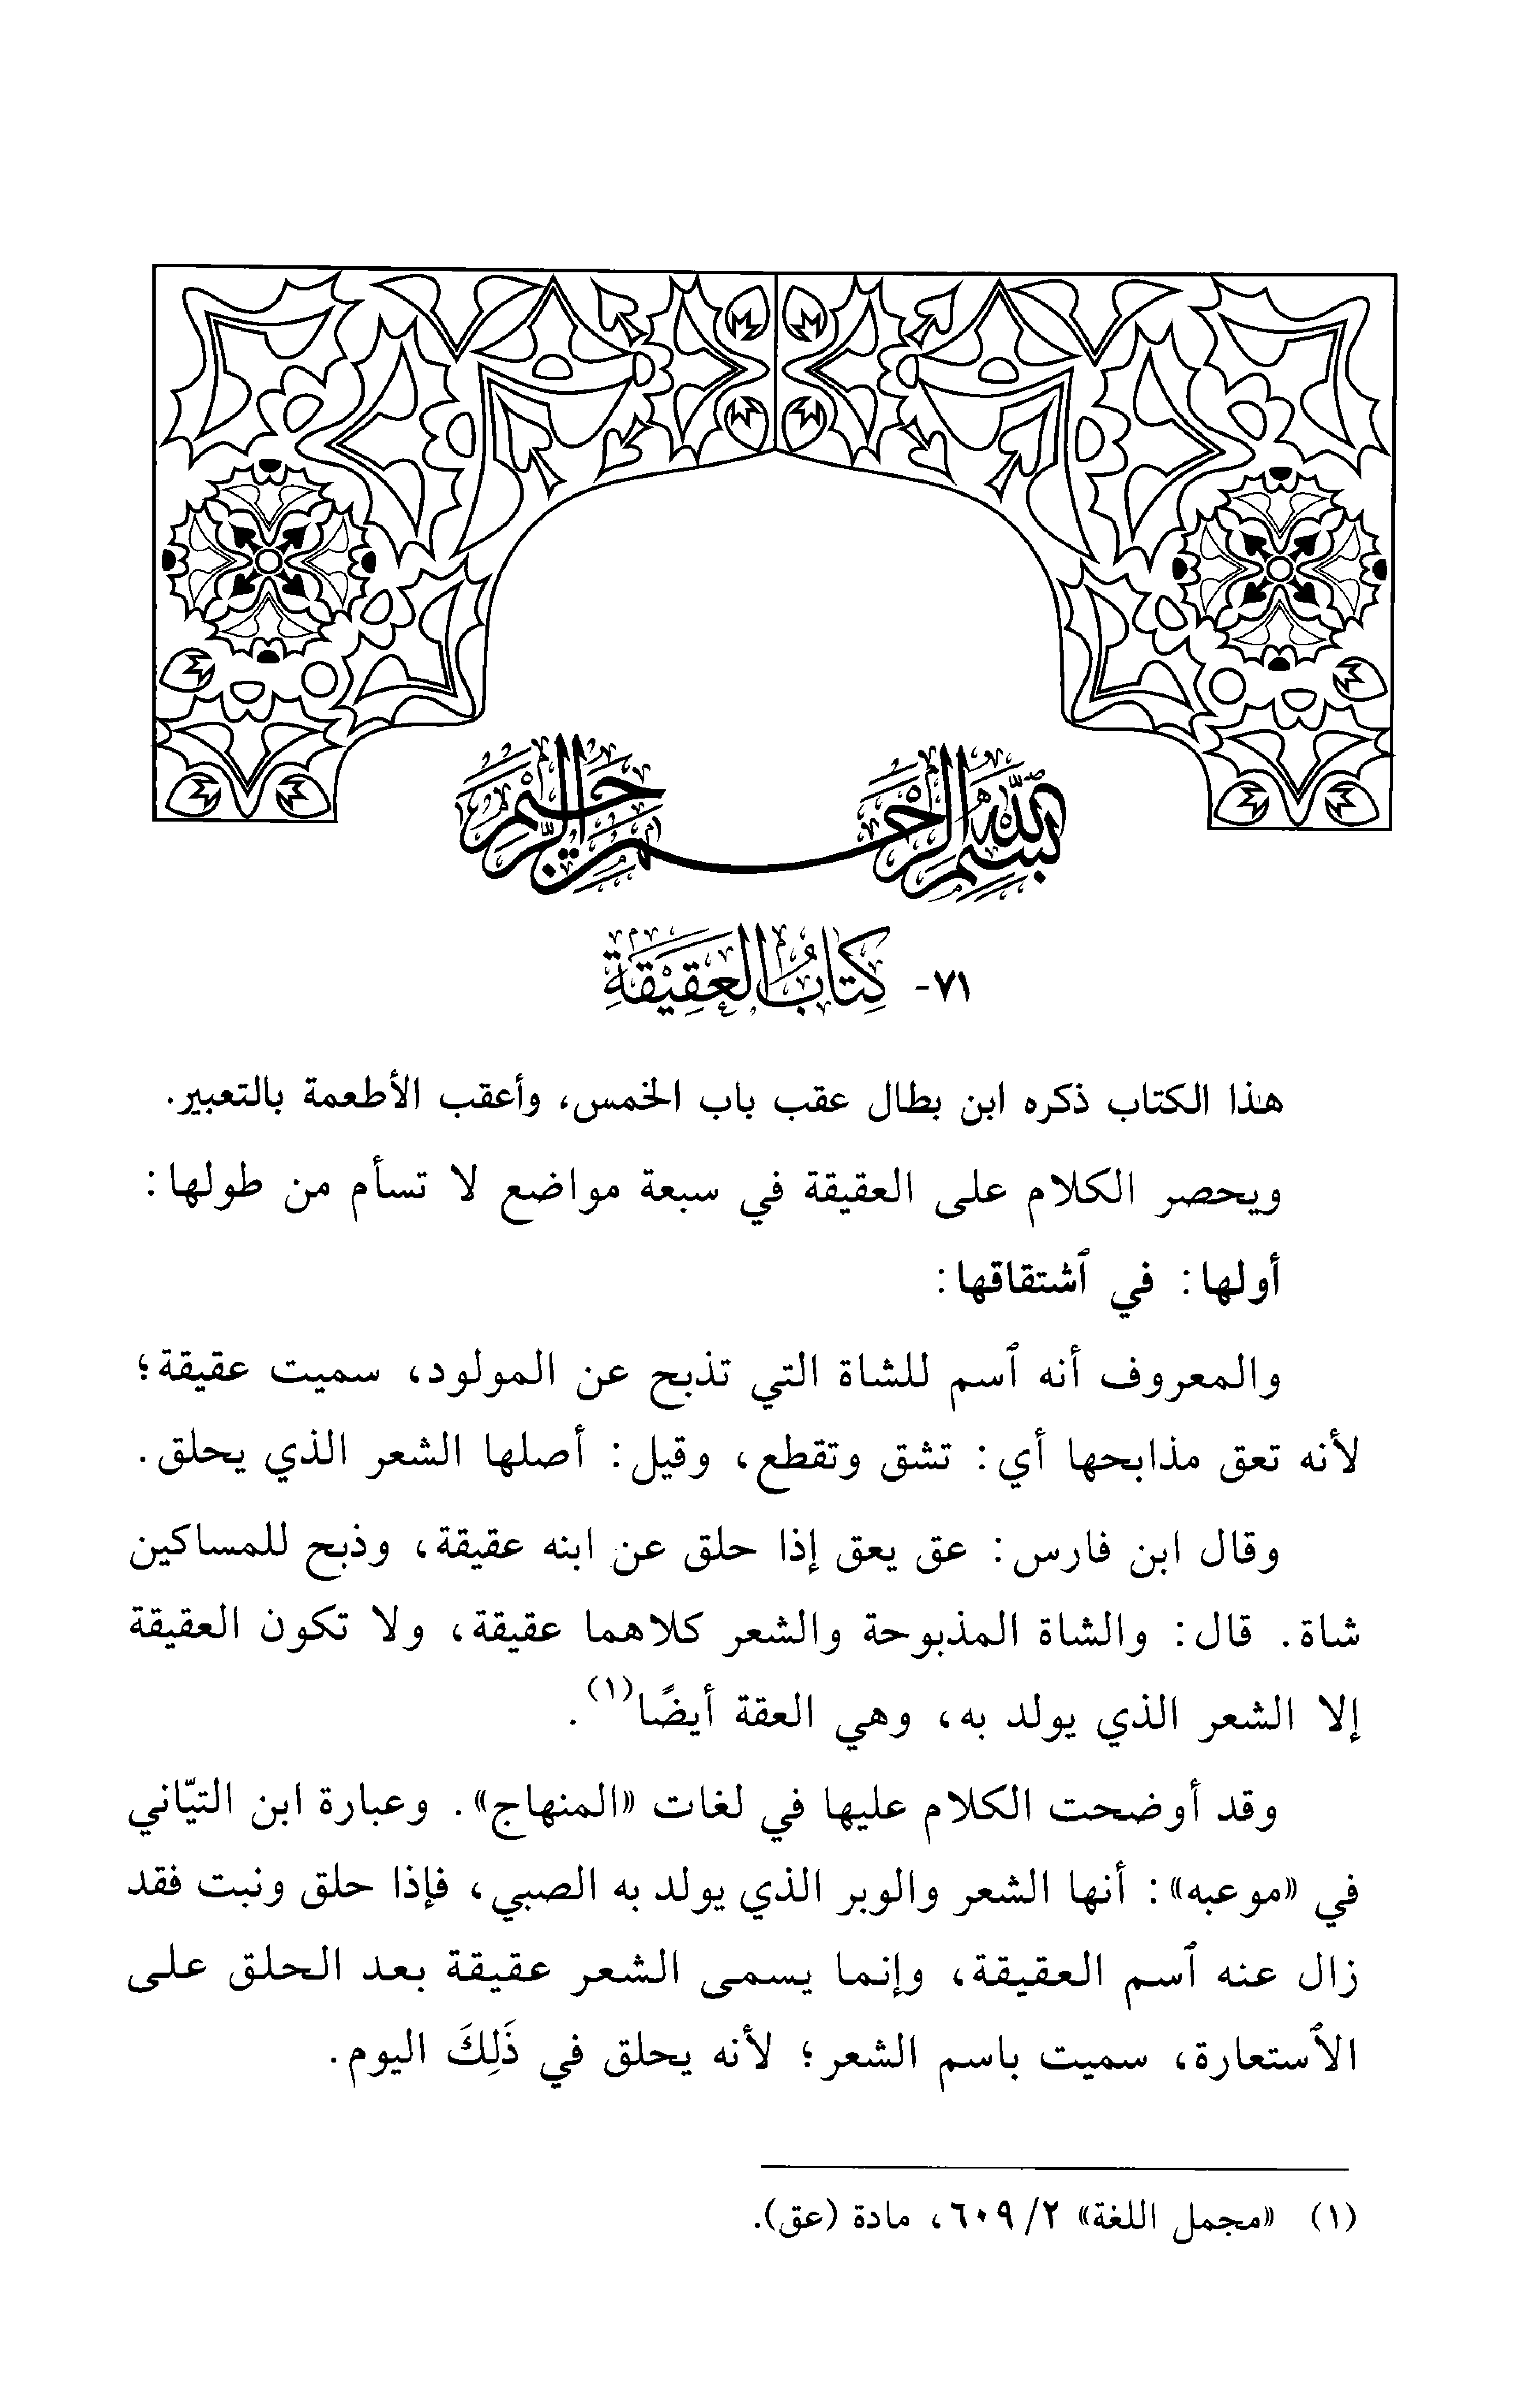 بسم الله الرحمن الرحيم
٧١- كِتَابُ العَقِيْقَةِ
هذا الكتاب ذكره ابن بطال عقب باب الخمس، وأعقب الأطعمة بالتعبير.
ويحصر الكلام على العقيقة في سبعة مواضع لا تسأم من طولها:
أولها: في ٱشتقاقها:
والمعروف أنه ٱسم للشاة التي تذبح عن المولود، سميت عقيقة؛
لأنه تعق مذابحها أي: تشق وتقطع، وقيل: أصلها الشعر الذي يحلق.
وقال ابن فارس: عق يعق إذا حلق عن ابنه عقيقة، وذبح للمساكين
شاة. قال: والشاة المذبوحة والشعر كلاهما عقيقة، ولا تكون العقيقة
إلا الشعر الذي يولد به، وهي العقة أيضًا(١).
وقد أوضحت الكلام عليها في لغات «المنهاج». وعبارة ابن التيّاني
في «موعبه»: أنها الشعر والوبر الذي يولد به الصبي، فإذا حلق ونبت فقد
زال عنه ٱسم العقيقة، وإنما يسمى الشعر عقيقة بعد الحلق على
الٱستعارة، سميت باسم الشعر؛ لأنه يحلق في ذَلِكَ اليوم.
(١) «مجمل اللغة» ٢/ ٦٠٩، مادة (عق).